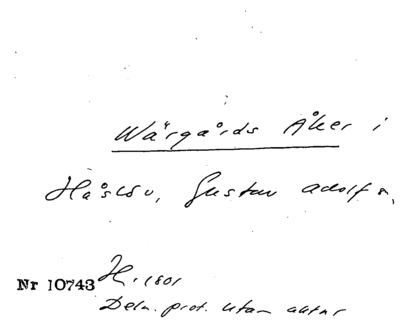 Wärgårds Åker i
Håslöv, Gustav Adolf s.
Nr 10743 H. 1801
Deln. prot. utan aktnr